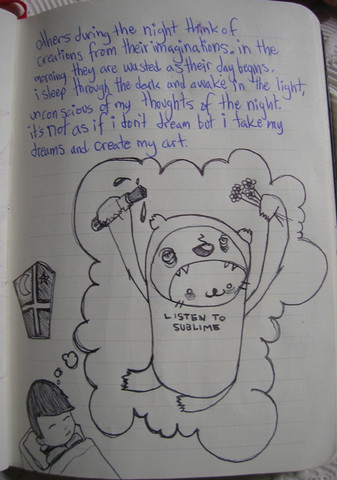 others during the night think of
creations from their imaginations. in the
morning they are wasted as their day begins.
i sleep through the dark and awake in the light,
unconscious of my thoughts of the night.
it's not as if i don't dream but i take my
dreams and create my art.
LISTEN TO
SUBLIME